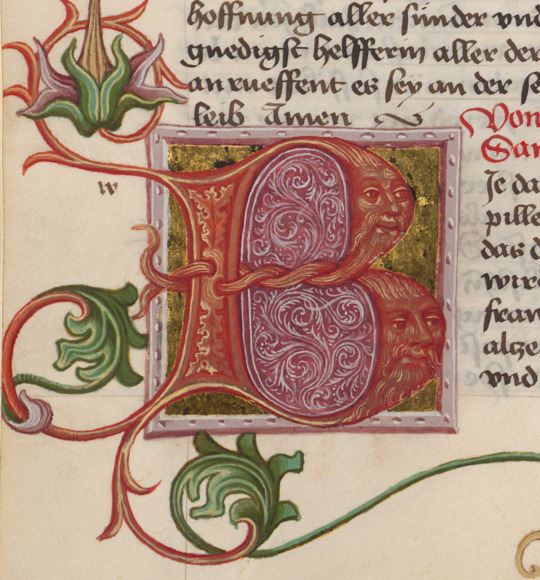 hoffnung aller sünder vnd
gnedigst helfferin aller der
anrueffent es sey an der se
leib Amen
Von
San
w
B
Je da
pille
das d
wird
fraw
altze
vnd